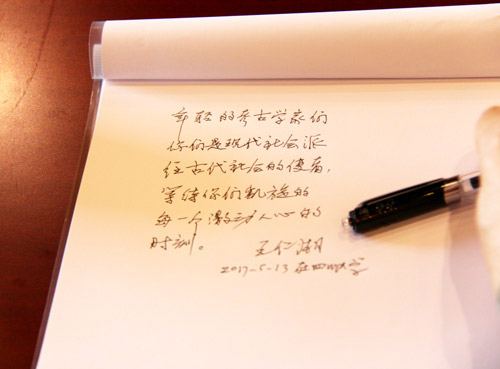 年轻的考古学家们
你们是现代社会派
往古代社会的使者，
等待你们凯旋的
每一个激动人心的
时刻。
王仁湘
2017-5-13 在四川大学